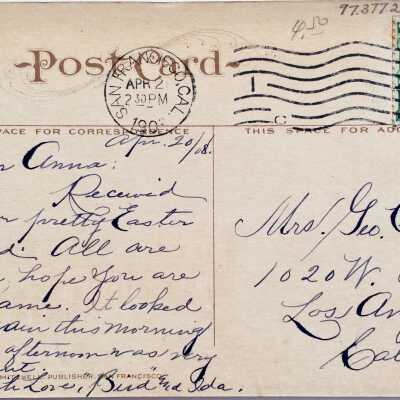 97.377.2
4.50
Post Card
SAN FRANCISCO, CAL.
APR 2
2 30 PM
190
1
C
PACE FOR CORRESPONDENCE
THIS SPACE FOR AD
Apr. 20/08.
Anna:
Received
pretty Easter
All are
hope You are
ame. It looked
ain this morning
afternoon was very
PUBLISHER, SAN FRANCISCO
Love, "Bird" and Ida.
Mrs. Geo. C
1020 W.
Los An
Cal